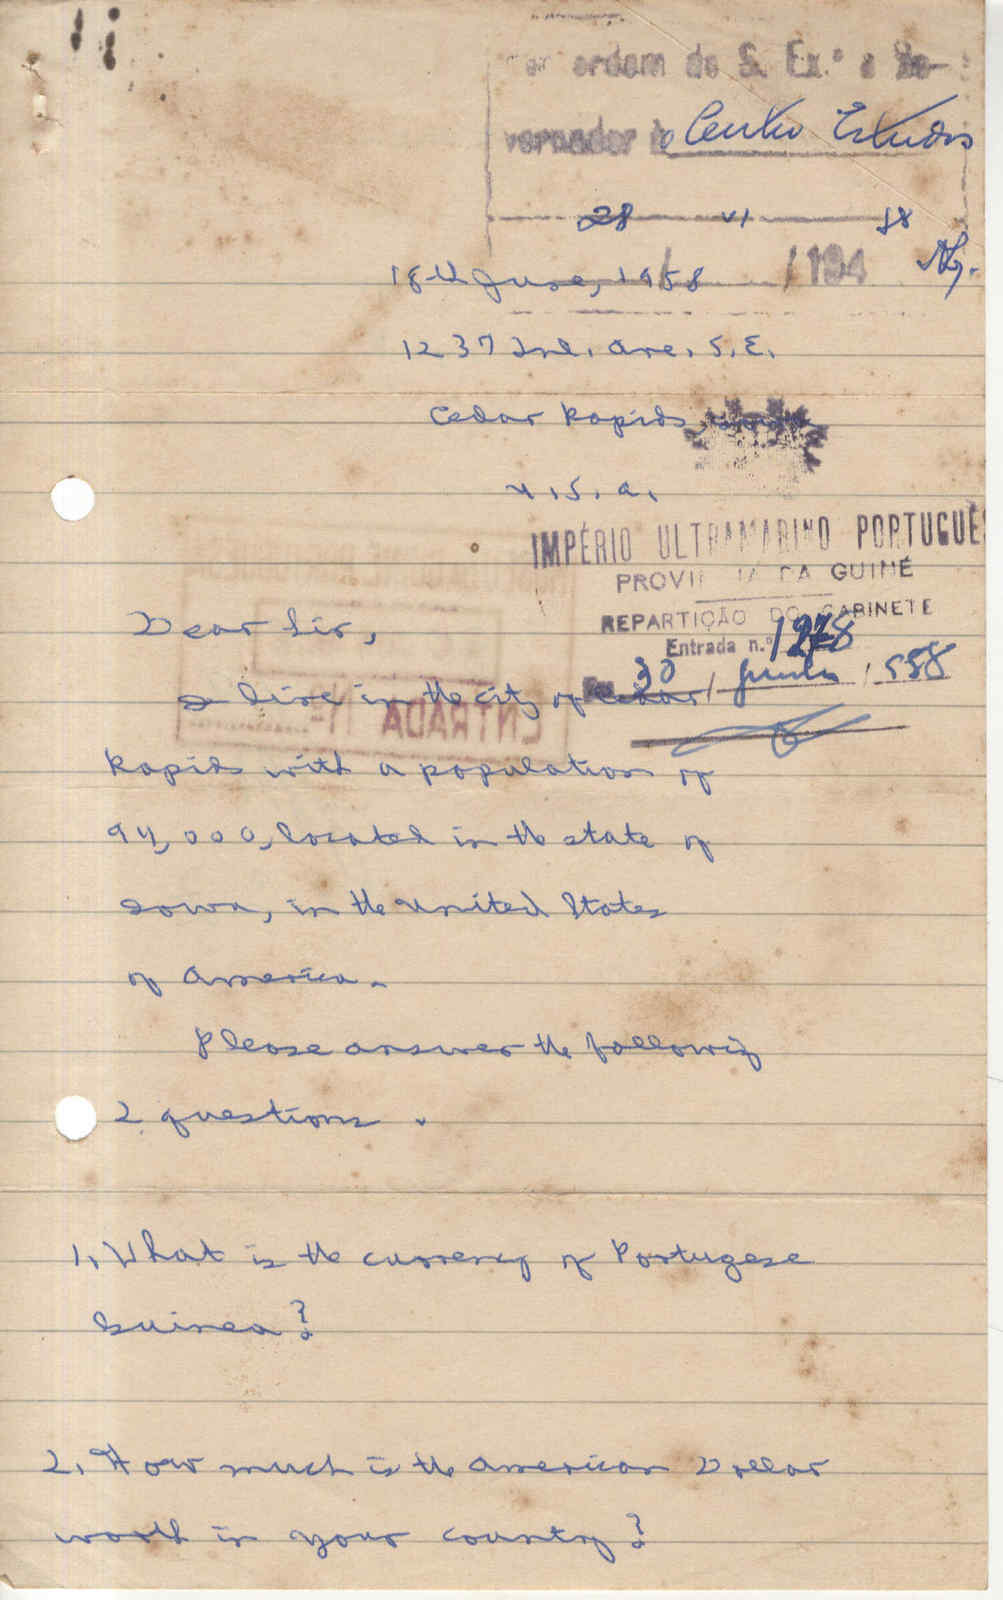 ordem de S. Ex.ª o Go-
vernador Centro Estudos
28 VI 58
18th June, 1958 / 194
1237 3rd. Ave. S.E.
Cedar Rapids,
U.S.A.
IMPÉRIO ULTRAMARINO PORTUGUÊS
PROVINCIA DA GUINÉ
REPARTIÇÃO DO GABINETE
Entrada n.º
30 / Junho / 958
Dear Sir,
I live in the city of Cedar
ENTRADA
Rapids with a population of
94,000, located in the state of
Iowa, in the United States
of America.
Please answer the following
2 questions.
1. What is the currency of Portugese
Guinea?
2. How much is the American Dollar
worth in your country?